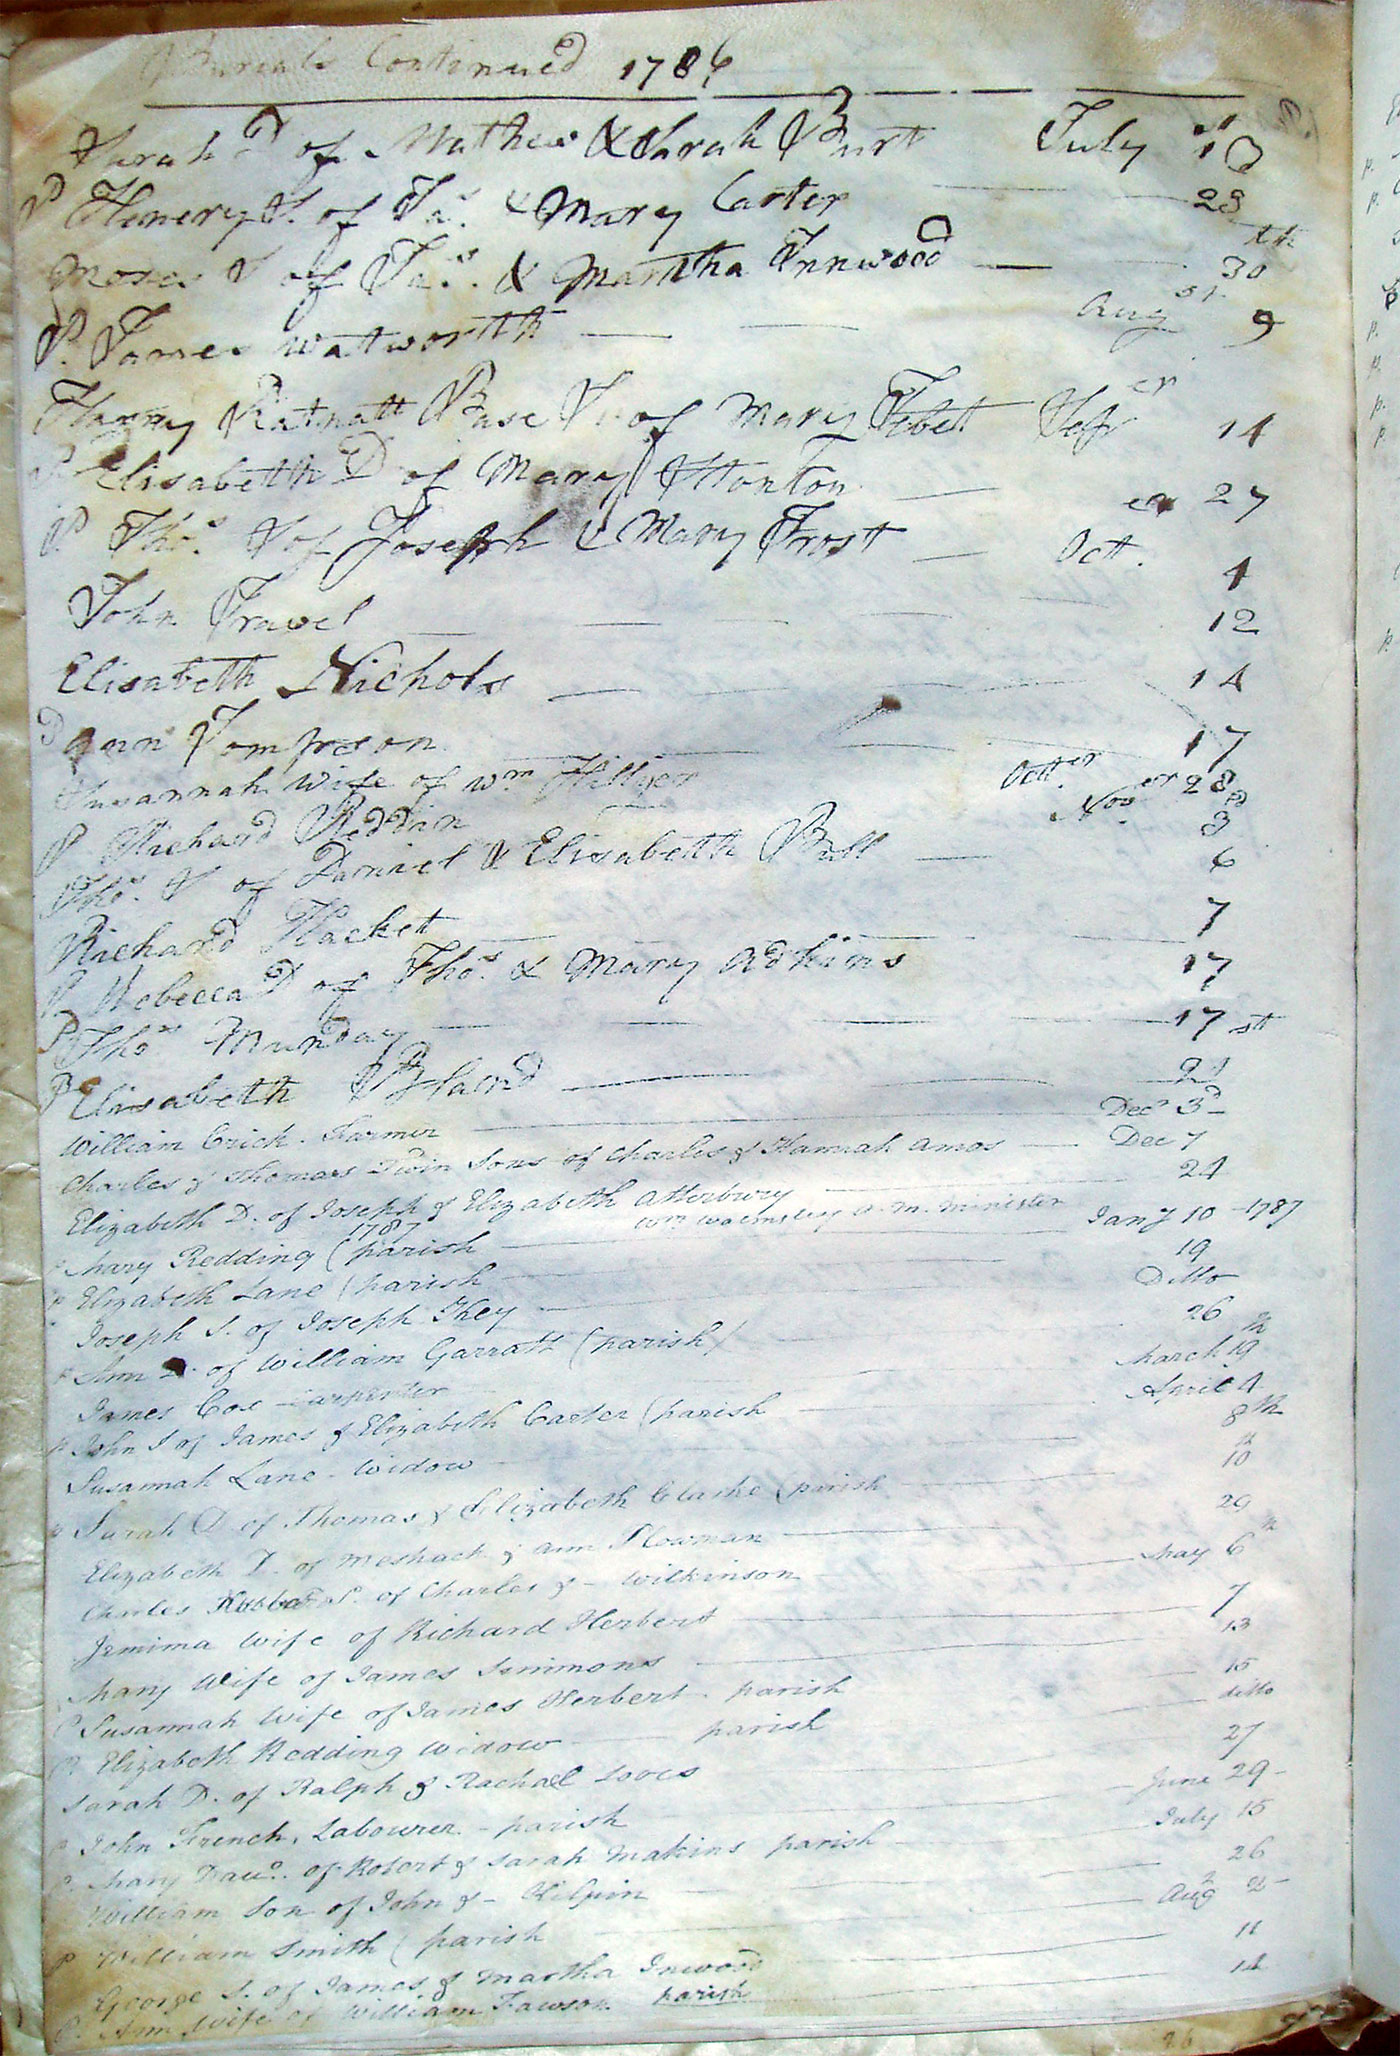 Burials Continued 1786
Sarah D of Mathew & Sarah Burt July 13
P Henery S. of Jas. & Mary Carter 28
Moses S of Jas. & Martha Innwood 30th
P. James Watworth Augst. 9
Harry Ratnatt Base S. of Mary Tebet Sepr 14
P Elisabeth D of Mary Stanton 27
P. Thos. S of Joseph & Mary Frost Octt. er 4
John Travel 12
Elisabeth Nichols 14
P Ann Tompson 17
Susannah Wife of Wm Hillyer Octter 28
P Richard Reddin Nover 3d
Thos. S of Daniel & Elisabeth Bull 6
Richard Hacket 7
P Rebecca D of Thos. & Mary Adkins 17
P Thos Munday 17
P Elisabeth Bland 21st
William Crick. Farmer Decr 3d
Charles & Thomas Twin Sons of Charles & Hannah Amos Dec 7
Elizabeth D. of Joseph & Elizabeth Atterbury 24
1787 Wm Walmsley A. M. Minister
P Mary Redding (parish Jany 10 1787
P Elizabeth Lane (parish 19
Joseph S. of Joseph Key Ditto
P Ann D. of William Garratt (parish) 26
James Cox Carpenter March 19th
P John S of James & Elizabeth Carter (parish April 4
Susannah Lane - Widow 8th
P Sarah D. of Thomas & Elizabeth Clarke (parish 10th
Elizabeth D. of Meshach & Ann Plowman 29
Charles S. of Charles & - Wilkinson May 6th
Jemima Wife of Richard Herbert 7
Mary Wife of James Simmons 13
P Susannah Wife of James Herbert. parish 15
P. Elizabeth Redding Widow parish ditto
Sarah D. of Ralph & Rachael 27
P John French, Labourer - parish June 29
P. Mary Daur. of Robert & Sarah Makins parish July 15
William Son of John & - Kilpin 26
P William Smith (parish Aug 2
George S. of James & Martha Inwood 11
P. Ann Wife of William Fawson parish 14